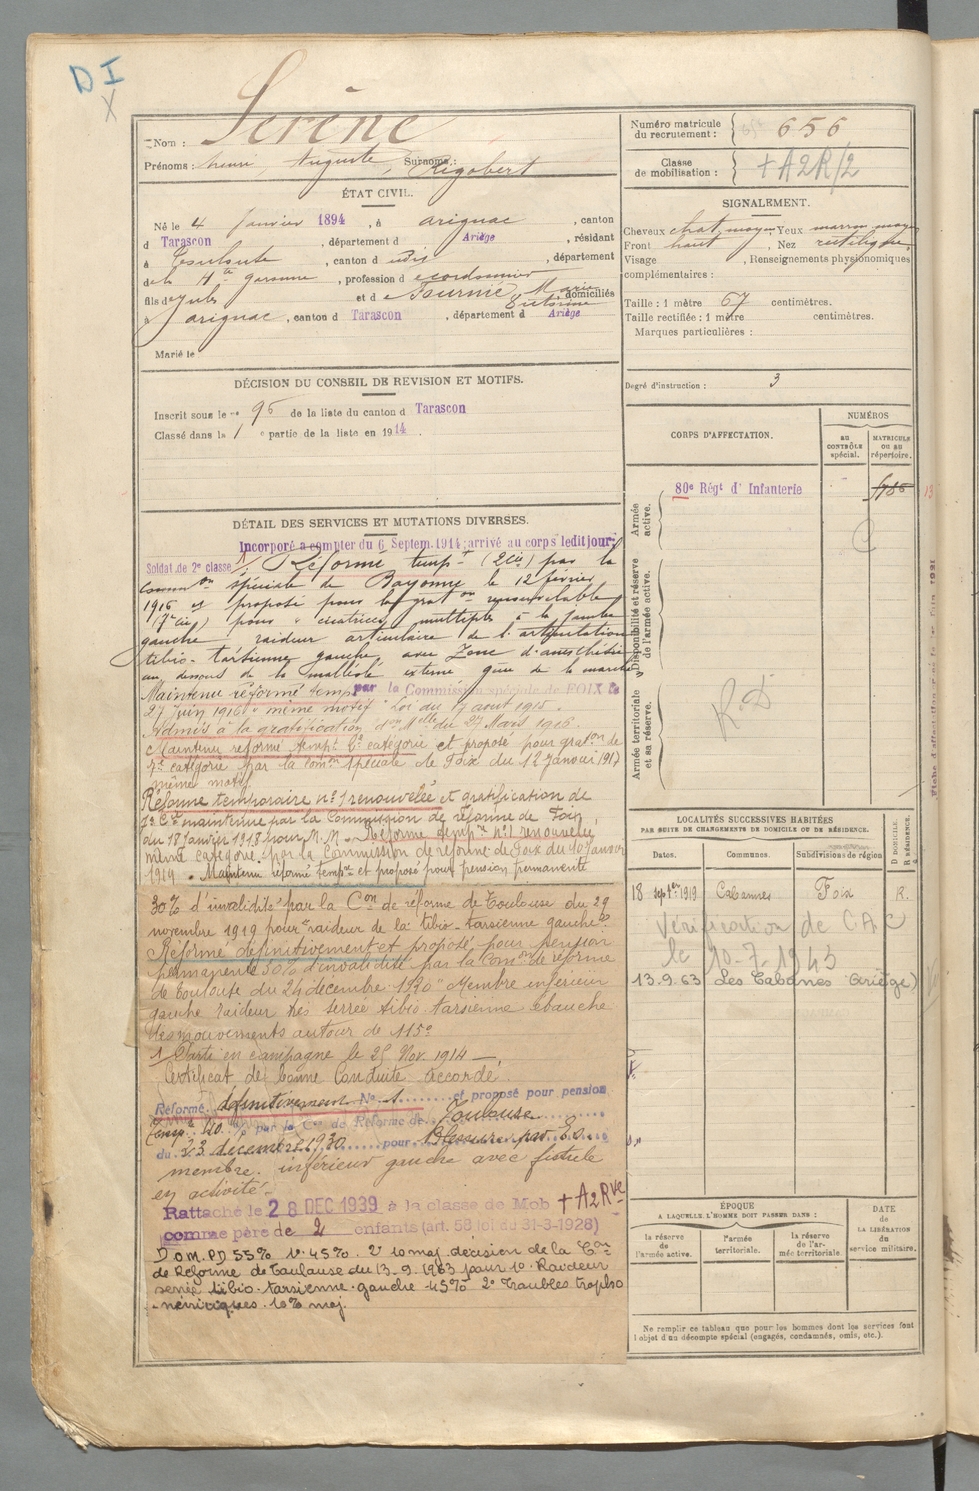 D I
X
Nom : Serène
Prénoms : henri, Auguste, Surnoms : Rigobert
ÉTAT CIVIL.
Né le 4 Janvier 1894, à arignac, canton
d Tarascon, département d Ariège, résidant
à Toulouse, canton d udis, département
de la Hte garonne, profession d e cordonnier
fils de Jules et d e Fournié Marie Victorine, domiciliés
à arignac, canton d Tarascon, département d Ariège
Marié le
DÉCISION DU CONSEIL DE REVISION ET MOTIFS.
Inscrit sous le no 95 de la liste du canton d Tarascon
Classé dans la 1 e partie de la liste en 1914.
DÉTAIL DES SERVICES ET MUTATIONS DIVERSES.
Incorporé à compter du 6 Septem. 1914; arrivé au corps ledit jour;
Soldat de 2e classe Réformé tempt (2 cie) par la
Common spéciale de Bayonne le 12 février
1916 et proposé pour la graton renouvelable
(7e cie) pour " cicatrices multiples à la jambe
gauche raideur articulaire de l'articulation
tibio-tarsienne gauche, avec Zone d'anesthésie
au dessous de la malléole externe gêne de la marche
Maintenu réformé temp par la Commission spéciale de FOIX le
27 Juin 1916 " même motif " Loi du 17 août 1915.
Admis à la gratification don Melle du 27 Mars 1916.
Maintenu réformé tempt 2e catégorie et proposé pour graton de
7e catégorie par la Comon spéciale de Foix du 12 Janvier 1917
même motif.
Réforme temporaire no 1 renouvelée et gratification de
7e Cie maintenue par la Commission de réforme de Foix,
du 18 Janvier 1918 pour M. M. Réforme tempre no 1 renouvelée
même catégorie par la Commission de réforme de Foix du 10 Janvier
1919. Maintenu réformé tempre et proposé pour pension permanente
30% d'invalidité par la Con de réforme de Toulouse du 29
novembre 1919 pour "raideur de la tibio-tarsienne gauche".
Réformé définitivement et proposé pour pension
permanente 30% d'invalidité par la Comon de réforme
de Toulouse du 24 décembre 1920 " Membre inférieur
gauche raideur très serrée tibio-tarsienne ébauche
des mouvements autour de 115°
Parti en campagne le 25 Nov. 1914 —
Certificat de bonne Conduite accordé
Réformé définitivement No 1 et proposé pour pension
temp. 40 % par la Con de Réforme de Toulouse
du 23 décembre 1930 pour Blessure par E.O.
membre inférieur gauche avec fistule
en activité.
Rattaché le 28 DEC 1939 à la classe de Mob + A2Rve
comme père de 2 enfants (art. 58 loi du 31-3-1928)
D.O.M. PD 55% 1° 45% 2° 10 maj. décision de la Con
de Réforme de Toulouse du 13.9.1963 pour 1° Raideur
serrée tibio-tarsienne gauche 45% 2° Troubles tropho
-névritiques 10% maj.
Numéro matricule du recrutement : 656
Classe de mobilisation : + A2R/2
SIGNALEMENT.
Cheveux chat. moyen Yeux marron moy
Front haut, Nez rectiligne,
Visage , Renseignements physionomiques
complémentaires :
Taille : 1 mètre 67 centimètres.
Taille rectifiée : 1 mètre centimètres.
Marques particulières :
Degré d'instruction : 3
CORPS D'AFFECTATION.
NUMÉROS
AU CONTRÔLE spécial.
MATRICULE OU AU répertoire.
Armée active.
80e Régt d' Infanterie
Disponibilité et réserve de l'armée active.
Armée territoriale et sa réserve.
R.D
LOCALITÉS SUCCESSIVES HABITÉES
PAR SUITE DE CHANGEMENTS DE DOMICILE OU DE RÉSIDENCE.
Dates. Communes. Subdivisions de région D DOMICILE. R RÉSIDENCE.
18 septbre 1919 Cabannes Foix R.
Vérification de CAC
le 10-7-1943
13.9.63 Les Cabanes (Ariège)
ÉPOQUE
A LAQUELLE L'HOMME DOIT PASSER DANS :
la réserve de l'armée active.
l'armée territoriale.
la réserve de l'armée territoriale.
DATE de LA LIBÉRATION du service militaire.
Ne remplir ce tableau que pour les hommes dont les services font
l'objet d'un décompte spécial (engagés, condamnés, omis, etc.).